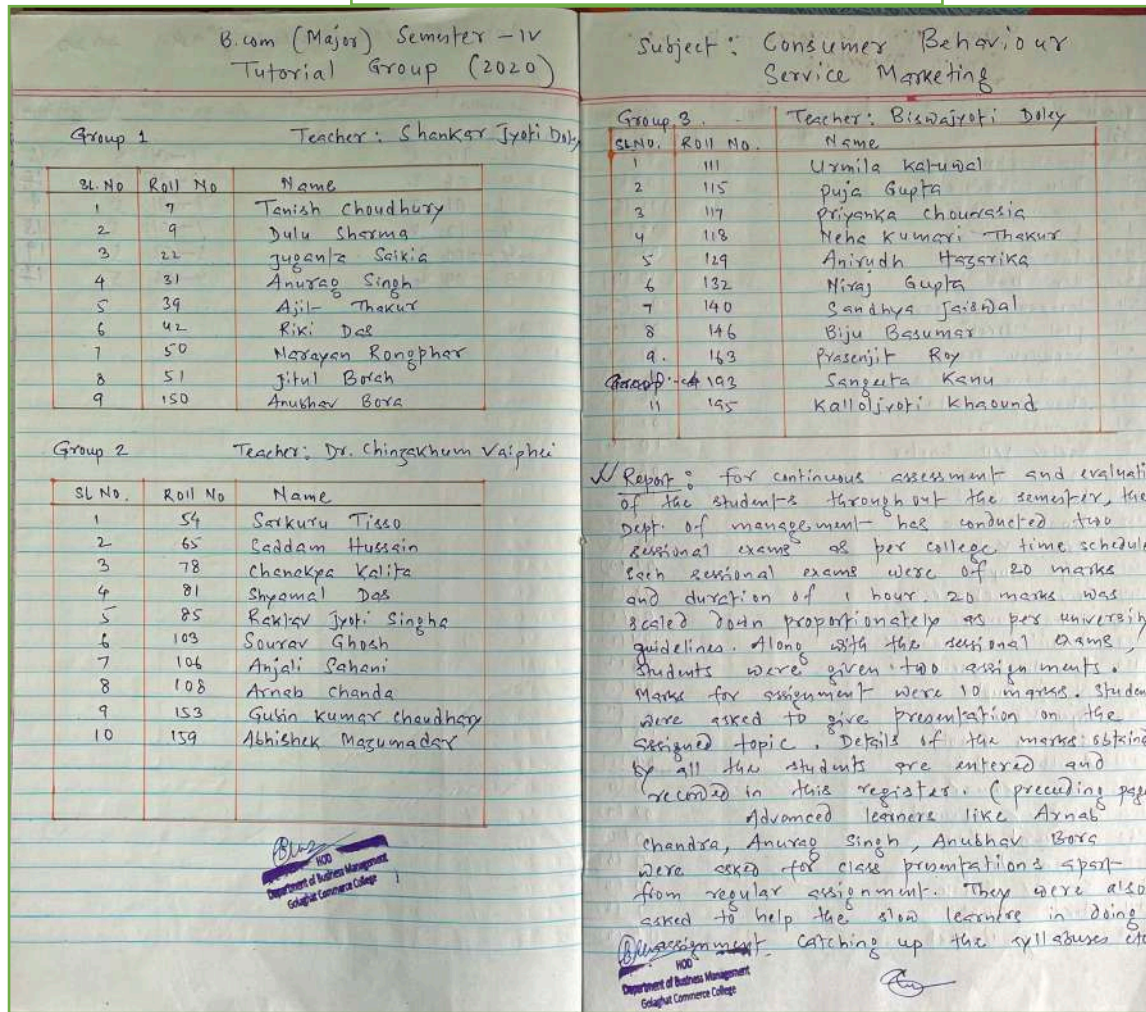 B.com (Major) Semester - IV
Tutorial Group (2020)
Group 1 Teacher: Shankar Jyoti Doley
SL. No Roll No Name
1 7 Tanish Choudhury
2 9 Dulu Sharma
3 22 Juganta Saikia
4 31 Anurag Singh
5 39 Ajit Thakur
6 42 Riki Das
7 50 Narayan Rongphar
8 51 Jitul Borah
9 150 Anubhav Bora
Group 2 Teacher: Dr. Chingakhum Vaiphei
SL No. Roll No Name
1 54 Sarkuru Tisso
2 65 Saddam Hussain
3 78 Chanakya Kalita
4 81 Shyamal Das
5 85 Raktav Jyoti Singha
6 103 Sourav Ghosh
7 106 Anjali Sahani
8 108 Arnab Chanda
9 153 Gubin Kumar Chaudhary
10 159 Abhishek Mazumadar
HOD
Department of Business Management
Golaghat Commerce College
Subject: Consumer Behaviour
Service Marketing
Group 3. Teacher: Biswajyoti Doley
SL NO. Roll No. Name
1 111 Urmila Katuwal
2 115 Puja Gupta
3 117 Priyanka Chourasia
4 118 Neha Kumari Thakur
5 129 Anirudh Hazarika
6 132 Niraj Gupta
7 140 Sandhya Jaiswal
8 146 Biju Basumar
9. 163 Prasenjit Roy
193 Sangeeta Kanu
11 195 Kalloljyoti Khaound
Report: for continuous assessment and evaluati
of the students throughout the semester, the
Dept. of management has conducted two
sessional exams as per college time schedule
Each sessional exams were of 20 marks
and duration of 1 hour. 20 marks was
scaled down proportionately as per university
guidelines. Along with the sessional exams,
students were given two assignments.
Marks for assignment were 10 marks. Studen
were asked to give presentation on the
assigned topic. Details of the marks obtained
by all the students are entered and
recorded in this register. (preceeding page
Advanced learners like Arnab
Chandra, Anurag Singh, Anubhav Bora
were asked for class presentations apart
from regular assignment. They were also
asked to help the slow learners in doing
assignment catching up the syllabuses etc
HOD
Department of Business Management
Golaghat Commerce College